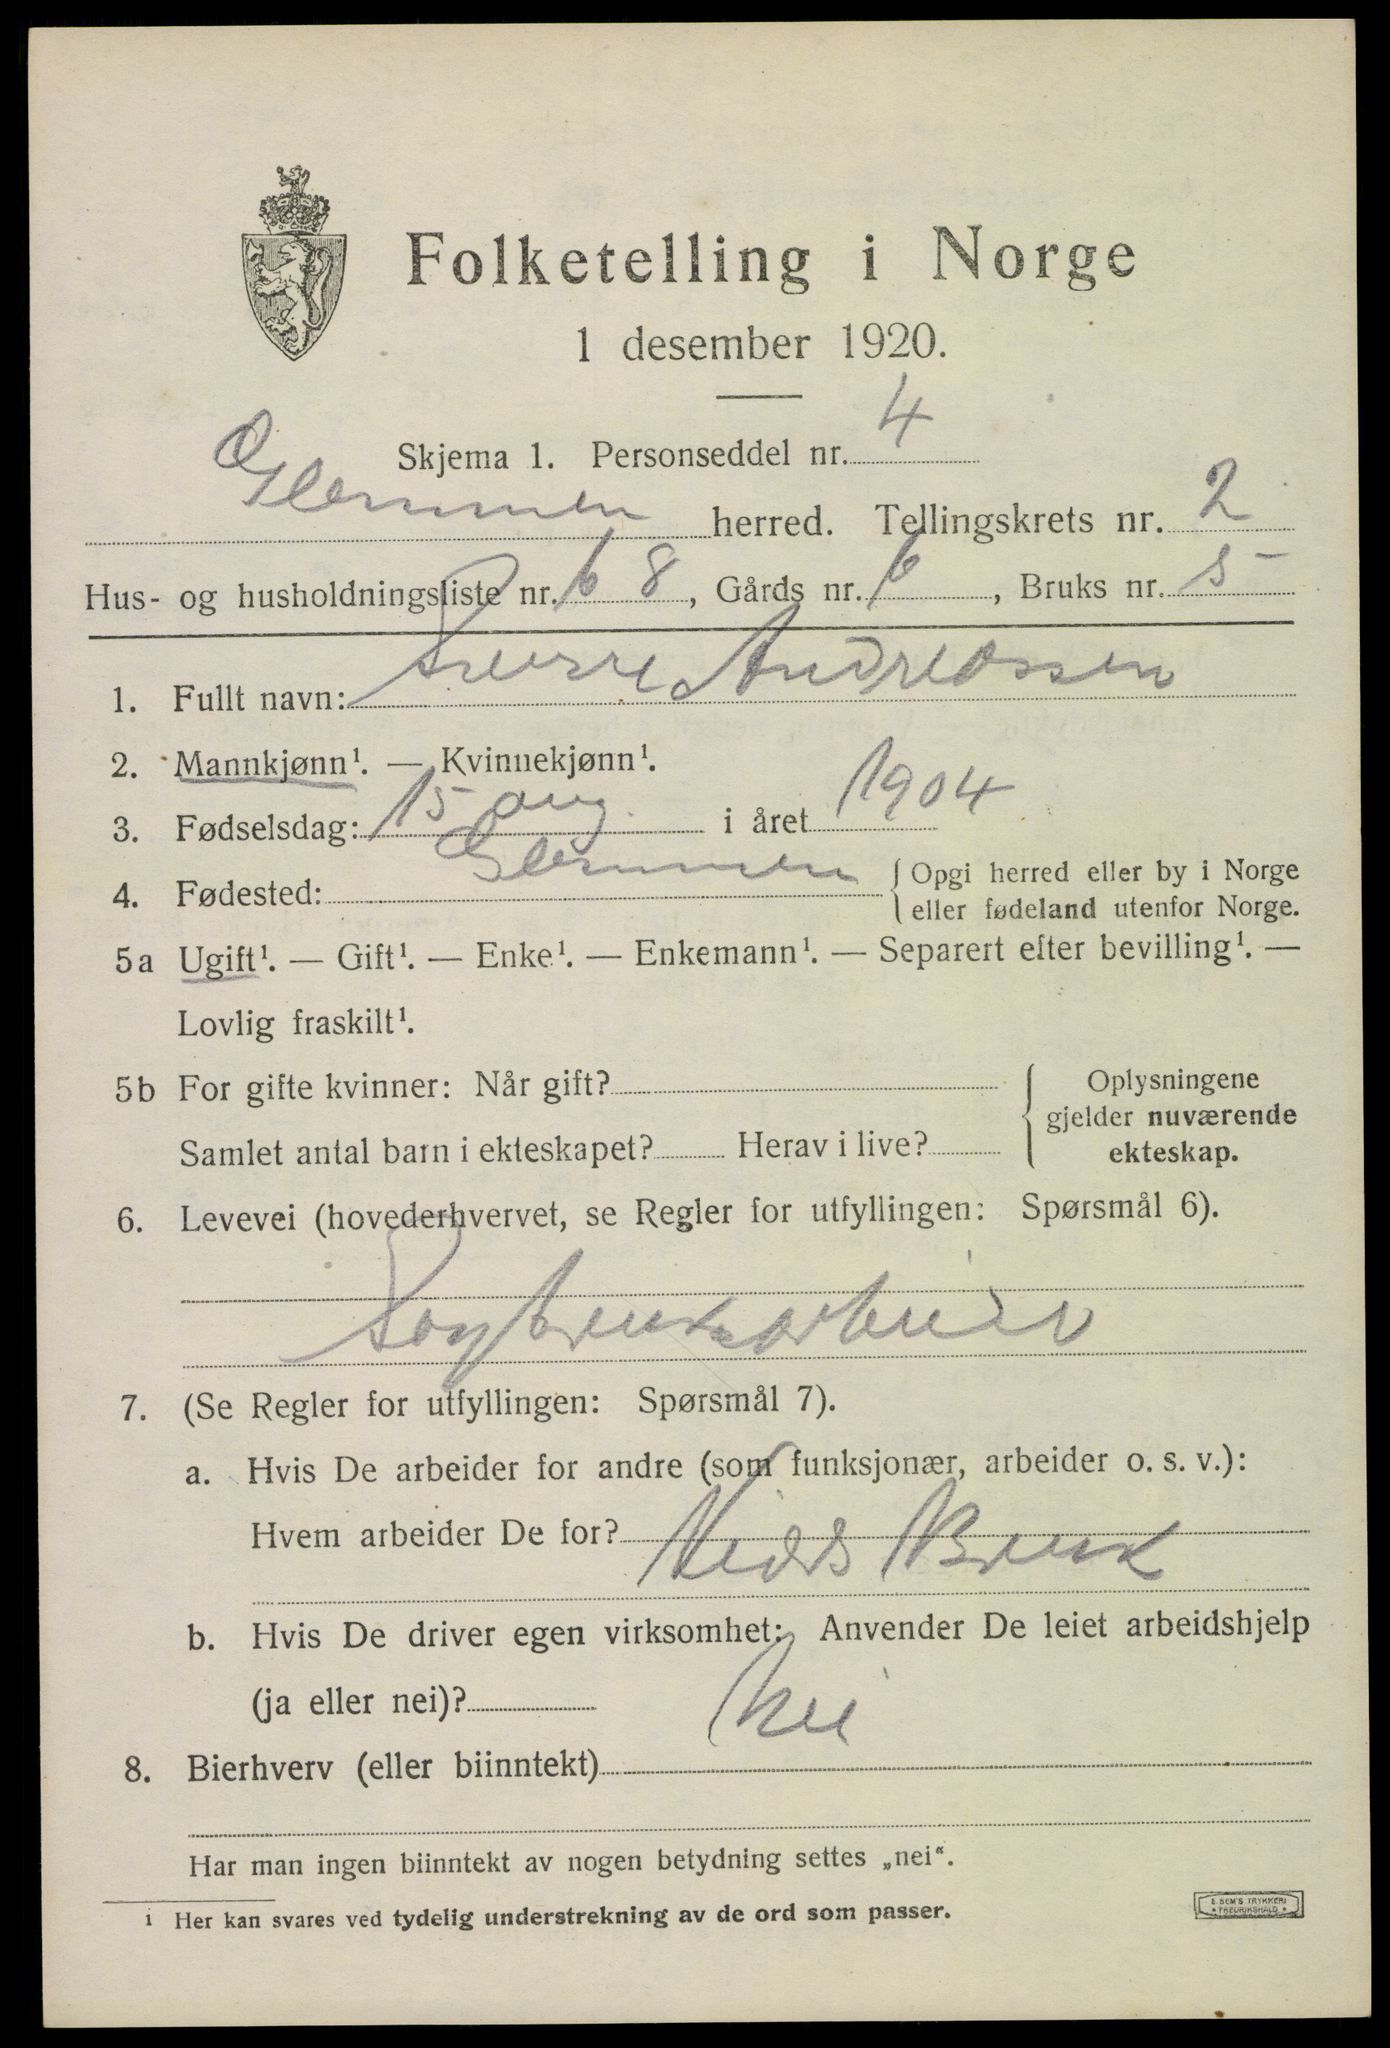 Folketelling i Norge
1 desember 1920.
Skjema 1. Personseddel nr. 4
Glemmen herred. Tellingskrets nr. 2
Hus- og husholdningsliste nr. 68, Gårds nr. 6, Bruks nr. 5
1. Fullt navn: Sverre Andreassen
2. Mannkjønn¹. — Kvinnekjønn¹.
3. Fødselsdag: 15 aug. i året 1904
4. Fødested: Glemmen {Opgi herred eller by i Norge
eller fødeland utenfor Norge.
5a Ugift¹. — Gift¹. — Enke¹. — Enkemann¹. — Separert efter bevilling¹. —
Lovlig fraskilt¹.
5b For gifte kvinner: Når gift?
Samlet antal barn i ekteskapet? Herav i live?
{Oplysningene
gjelder nuværende
ekteskap.
6. Levevei (hovederhvervet, se Regler for utfyllingen: Spørsmål 6).
Sagbruksarbeider
7. (Se Regler for utfyllingen: Spørsmål 7).
a. Hvis De arbeider for andre (som funksjonær, arbeider o. s. v.):
Hvem arbeider De for? Bruk
b. Hvis De driver egen virksomhet: Anvender De leiet arbeidshjelp
(ja eller nei)?
Nei
8. Bierhverv (eller biinntekt)
Har man ingen biinntekt av nogen betydning settes „nei“.
1 Her kan svares ved tydelig understrekning av de ord som passer.
E. SEM'S TRYKKERI
• FREDRIKSHALD •